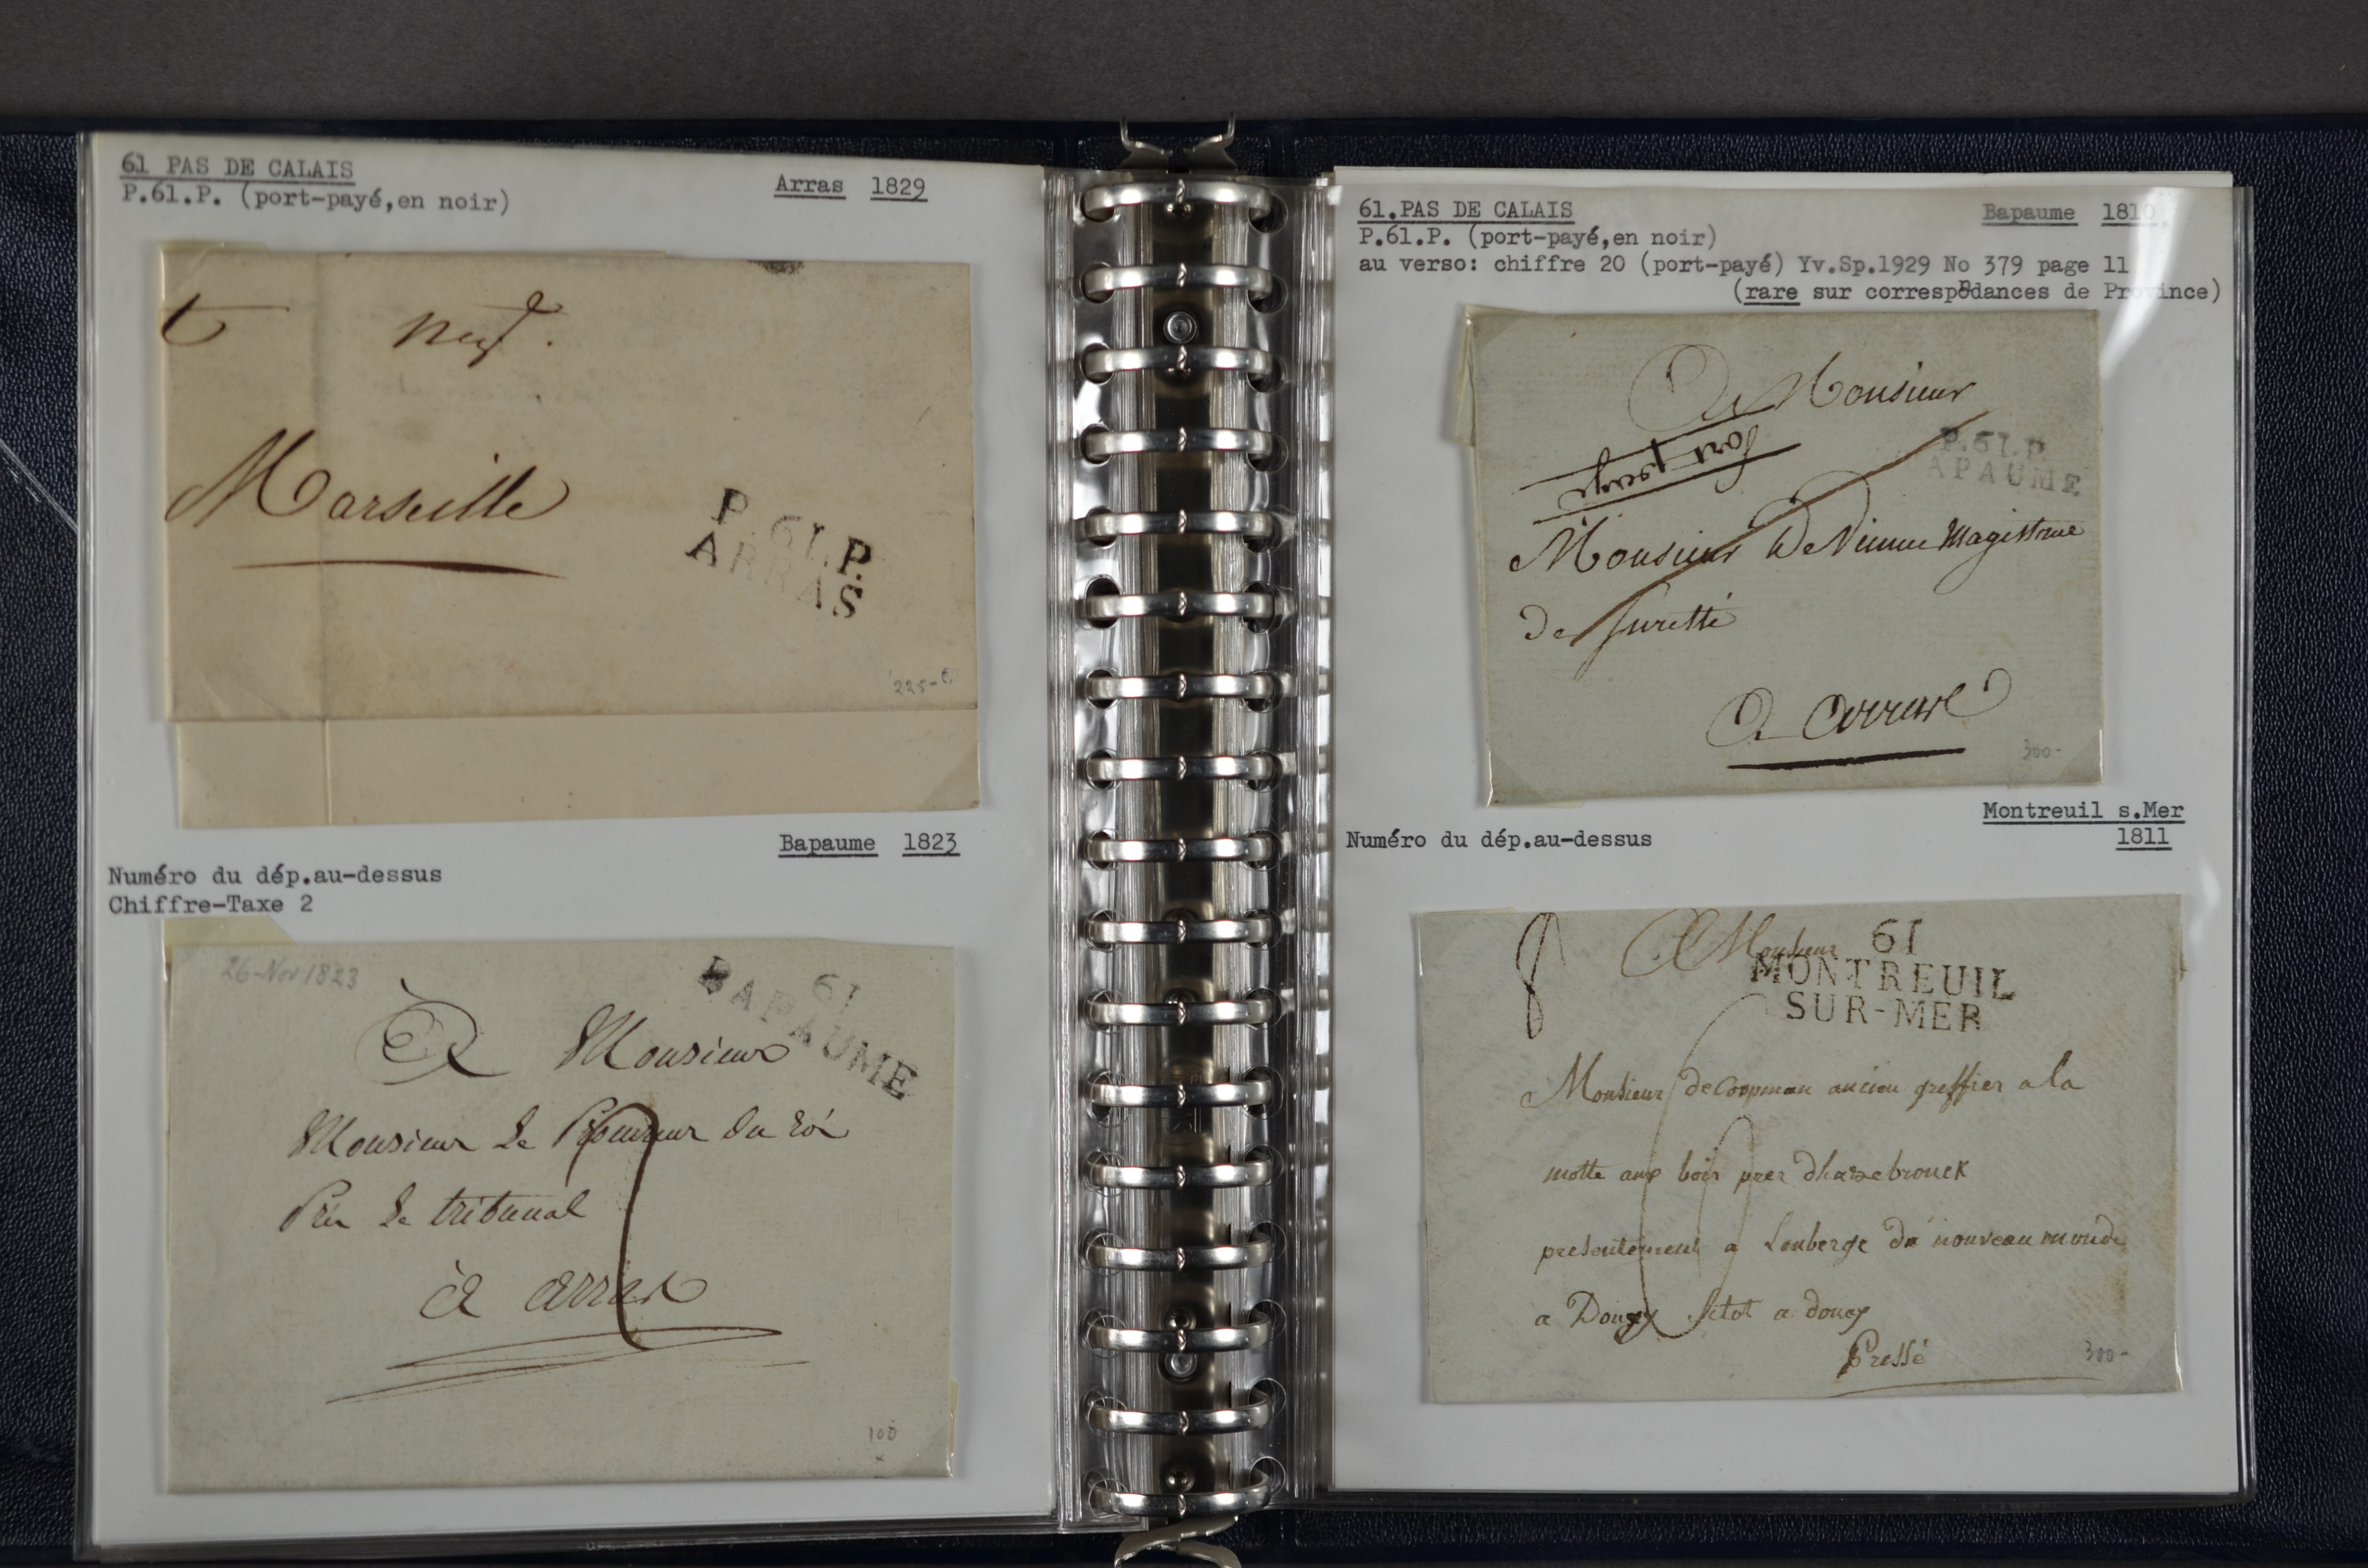 61 PAS DE CALAIS
P.61.P. (port-payé,en noir)
Arras 1829
Marseille
P.61.P.
ARRAS
Bapaume 1823
Numéro du dép.au-dessus
Chiffre-Taxe 2
26-Nov 1823
61
BAPAUME
A Monsieur
Monsieur Le Procureur du roi
Près Le tribunal
à arras
100
61.PAS DE CALAIS
Bapaume 1810
P.61.P. (port-payé,en noir)
au verso: chiffre 20 (port-payé) Yv.Sp.1929 No 379 page 11
(rare sur correspondances de Province)
A Monsieur
port payé
P.61.P.
APAUME
Monsieur magistrat
de suretté
A arras
300-
Montreuil s.Mer
1811
Numéro du dép.au-dessus
8
A Monsieur
61
MONTREUIL
SUR-MER
Monsieur de Coopman ancien greffier a la
motte aux bois prez dhazebrouck
presentement a Lauberge du nouveau monde
a Douay sitot a douay
Pressé
300-